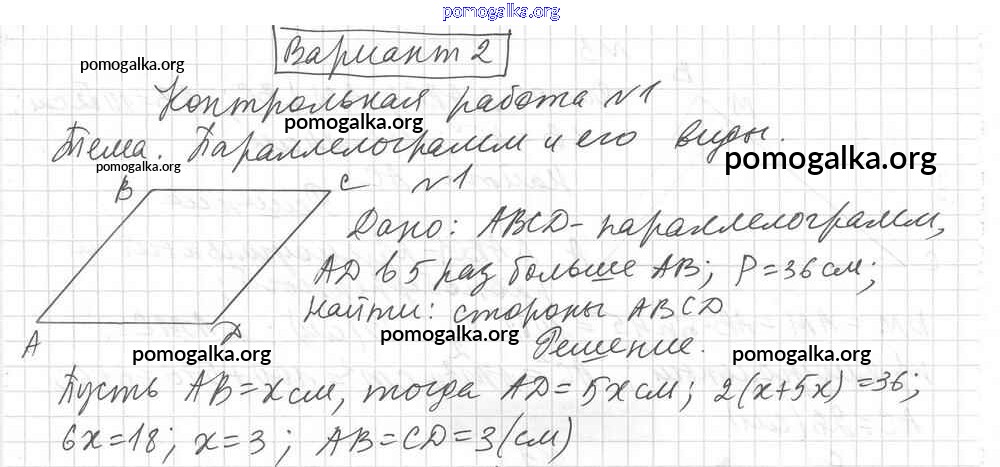 pomogalka.org
Вариант 2
pomogalka.org
Контрольная работа №1
pomogalka.org
Тема. Параллелограмм и его виды.
pomogalka.org
pomogalka.org
B
C
№1
Дано: ABCD - параллелограмм,
AD в 5 раз больше AB; P = 36 см;
Найти: стороны ABCD
A
D
pomogalka.org
Решение.
pomogalka.org
pomogalka.org
Пусть AB = x см, тогда AD = 5x см; 2(x+5x) = 36;
6x = 18; x = 3; AB = CD = 3 (см)